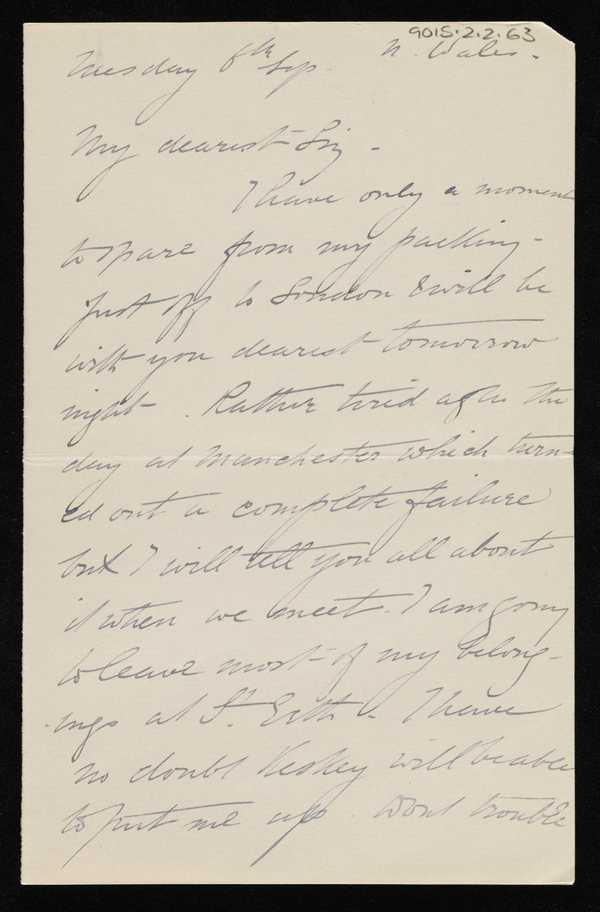 9015.2.2.63
Tuesday 8th Sep. N. Wales.
My dearest
I have only a moment
to spare from my packing -
just off to London & will be
with you dearest tomorrow
night. Rather tired after the
day at Manchester which turn-
ed out a complete failure
but I will tell you all about
it when we meet. I am going
to leave most of my belong-
ings at St. Erth. I have
no doubt will be able
to put me up. Dont trouble